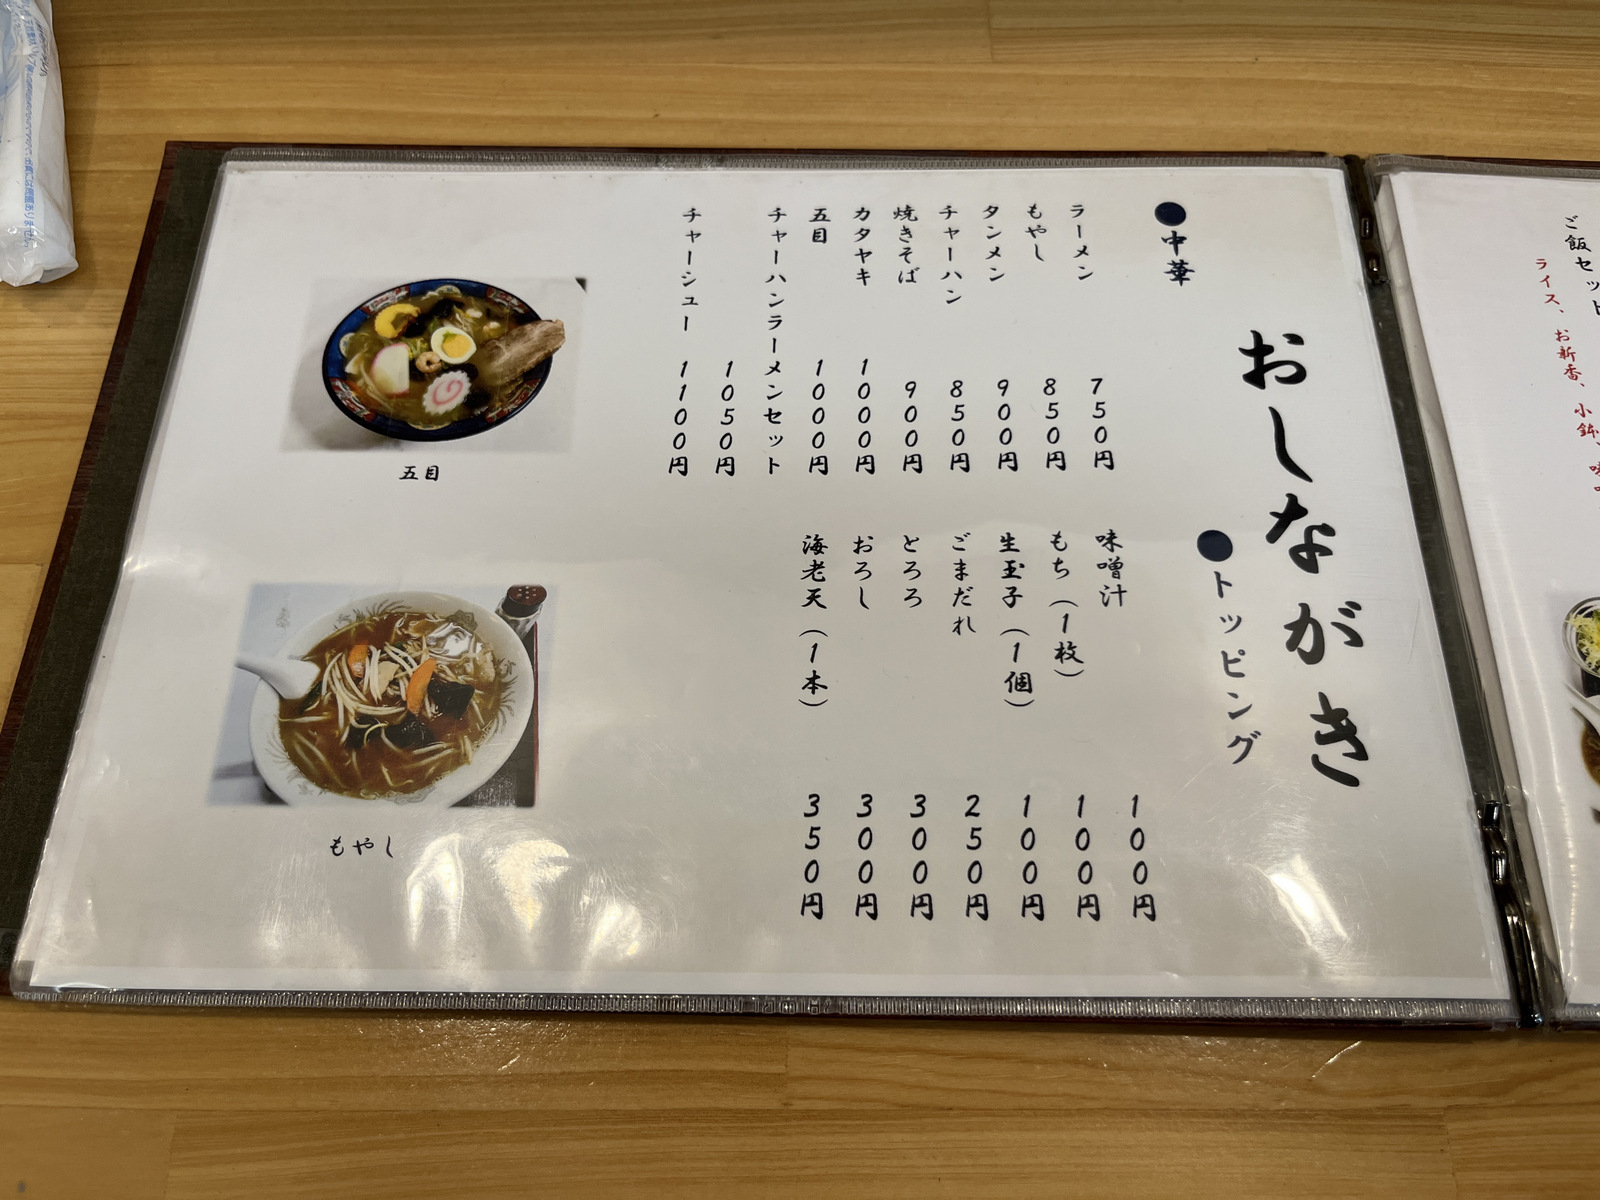 おしながき
●中華
ラーメン 750円
もやし 850円
タンメン 900円
チャーハン 850円
焼きそば 900円
カタヤキ 1000円
五目 1000円
チャーハンラーメンセット
1050円
チャーシュー 1100円
●トッピング
味噌汁 100円
もち(1枚) 100円
生玉子(1個) 100円
ごまだれ 250円
とろろ 300円
おろし 300円
海老天(1本) 350円
五目
もやし
ご飯セット
ライス、お新香、小鉢、